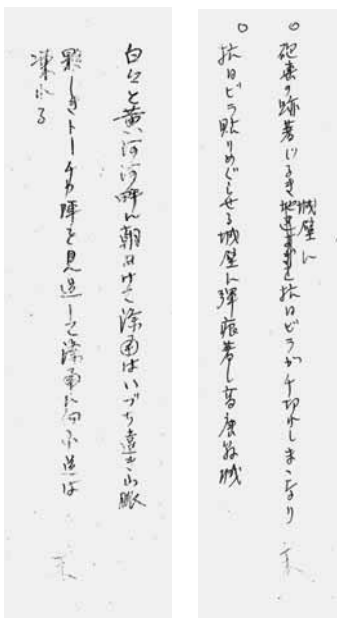 ○ 砲車の跡著じるき城壁に抗日ビラが千切れしまゝなり
○ 抗日ビラ貼りめぐらせる城壁に弾痕著し高唐縣城
白々と黄河河畔に朝あけて済南はいづち遠き山脈
夥しきトーチカ陣を見過して済南に向ふ道は
凍れる